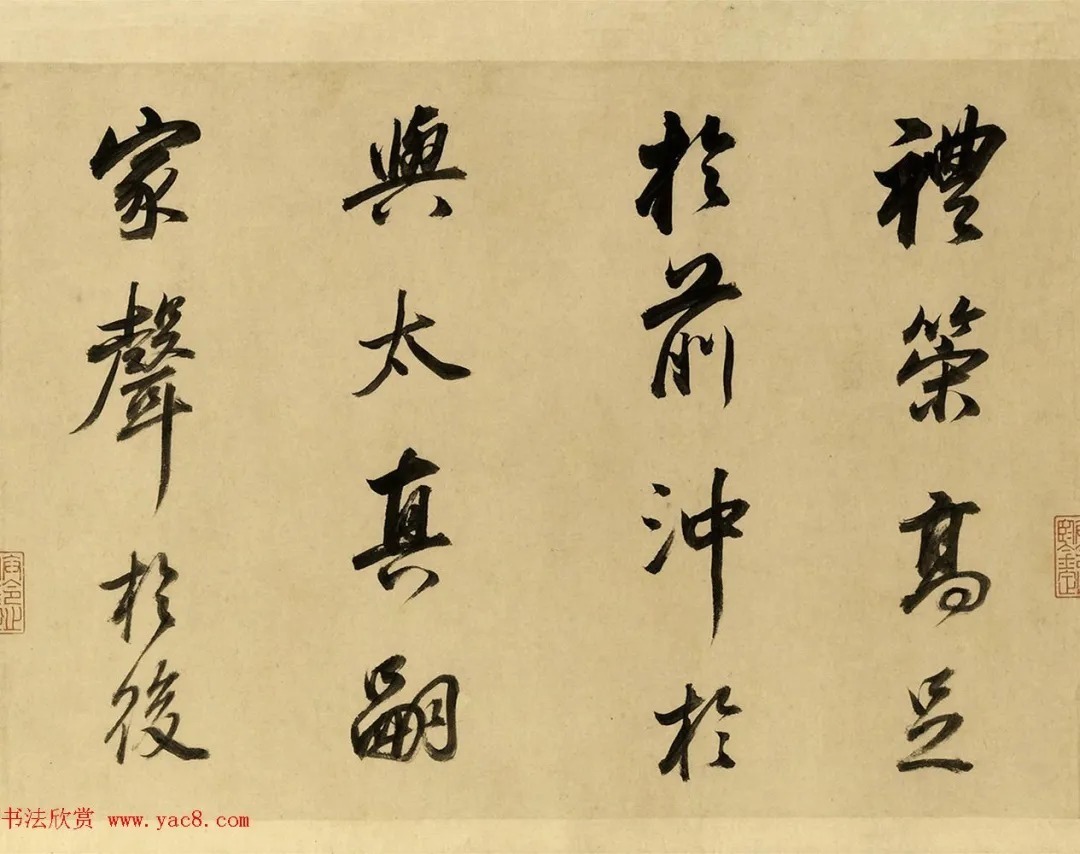 禮第高足
於前沖於
與太真嗣
家聲於後
书法欣赏 www.yac8.com